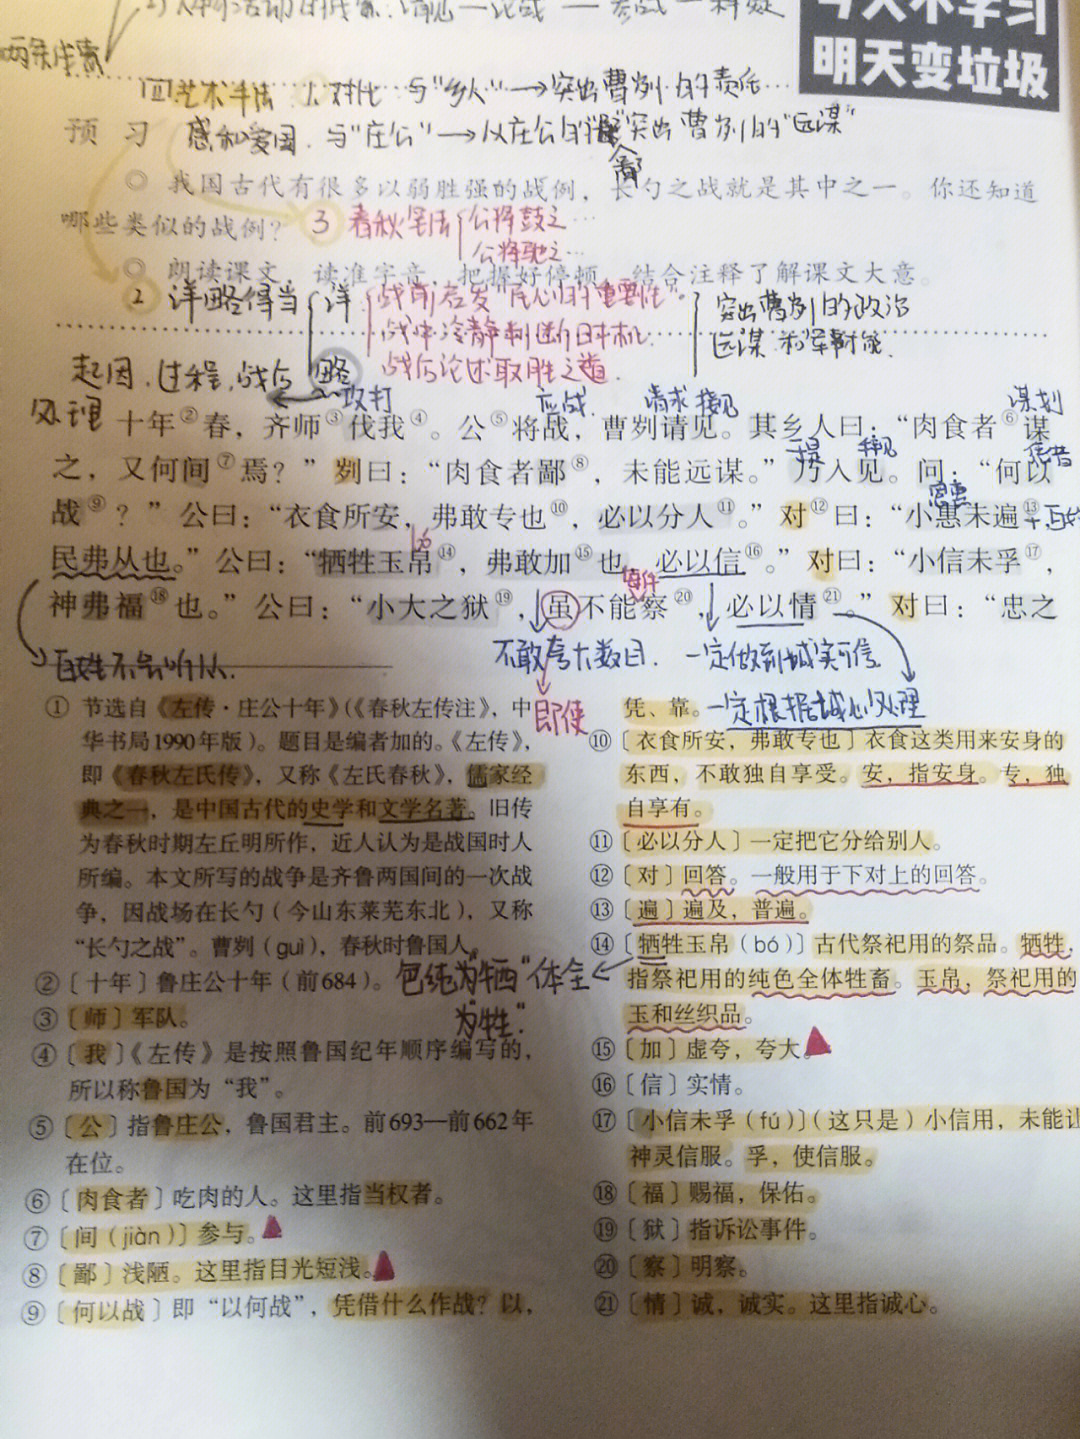 今天不学习
明天变垃圾
艺术手法 1.对比 与“乡人”→突出曹刿的责任
预 习 感和爱国.与“庄公”→以庄公的“鄙”突出曹刿的“远谋”
◎ 我国古代有很多以弱胜强的战例，长勺之战就是其中之一。你还知道
哪些类似的战例？ 3 春秋笔法 公将鼓之…
公将驰之…
◎ 朗读课文，读准字音，把握好停顿，结合注释了解课文大意。
2 详略得当 详 战前启发“民心的重要性”. 突出曹刿的政治
战中冷静判断日本机. 远谋和军事才能.
战后论述取胜之道.
起因.过程.战后 略
处理 攻打 应战. 请求接见 谋划
十年②春，齐师③伐我④。公⑤将战，曹刿请见。其乡人曰：“肉食者⑥谋
于是 拜见 凭借
之，又何间⑦焉？”刿曰：“肉食者鄙⑧，未能远谋。”乃入见。问：“何以
恩惠
战⑨？”公曰：“衣食所安，弗敢专也⑩，必以分人⑪。”对⑫曰：“小惠未遍⑬，
民弗从也。”公曰：“牺牲玉帛⑭，弗敢加⑮也，必以信⑯。”对曰：“小信未孚⑰，
神弗福⑱也。”公曰：“小大之狱⑲，虽不能察⑳，必以情㉑。”对曰：“忠之
百姓不会听从. 不敢夸大数目. 一定做到诚实可信
即使 一定根据诚心处理
① 节选自《左传·庄公十年》（《春秋左传注》，中
华书局1990年版）。题目是编者加的。《左传》，
即《春秋左氏传》，又称《左氏春秋》，儒家经
典之一，是中国古代的史学和文学名著。旧传
为春秋时期左丘明所作，近人认为是战国时人
所编。本文所写的战争是齐鲁两国间的一次战
争，因战场在长勺（今山东莱芜东北），又称
“长勺之战”。曹刿（guì），春秋时鲁国人。
②〔十年〕鲁庄公十年（前684）。
③〔师〕军队。
④〔我〕《左传》是按照鲁国纪年顺序编写的，
所以称鲁国为“我”。
⑤〔公〕指鲁庄公，鲁国君主。前693—前662年
在位。
⑥〔肉食者〕吃肉的人。这里指当权者。
⑦〔间（jiàn）〕参与。
⑧〔鄙〕浅陋。这里指目光短浅。
⑨〔何以战〕即“以何战”，凭借什么作战？以，
凭、靠。
⑩〔衣食所安，弗敢专也〕衣食这类用来安身的
东西，不敢独自享受。安，指安身。专，独
自享有。
⑪〔必以分人〕一定把它分给别人。
⑫〔对〕回答。一般用于下对上的回答。
⑬〔遍〕遍及，普遍。
⑭〔牺牲玉帛（bó）〕古代祭祀用的祭品。牺牲，
指祭祀用的纯色全体牲畜。玉帛，祭祀用的
玉和丝织品。
包纯为“牺”体全
为“牲”.
⑮〔加〕虚夸，夸大。
⑯〔信〕实情。
⑰〔小信未孚（fú）〕（这只是）小信用，未能让
神灵信服。孚，使信服。
⑱〔福〕赐福，保佑。
⑲〔狱〕指诉讼事件。
⑳〔察〕明察。
㉑〔情〕诚，诚实。这里指诚心。